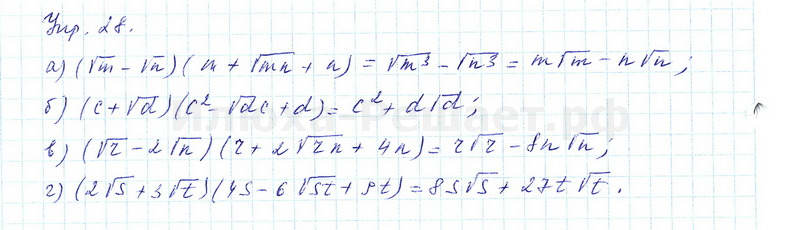 Упр. 28.
а) (√m − √n)(m + √mn + n) = √m³ − √n³ = m√m − n√n;
б) (c + √d)(c² − √dc + d) = c² + d√d;
в) (√r − 2√n)(r + 2√rn + 4n) = r√r − 8n√n;
г) (2√s + 3√t)(4s − 6√st + 9t) = 8s√s + 27t√t.